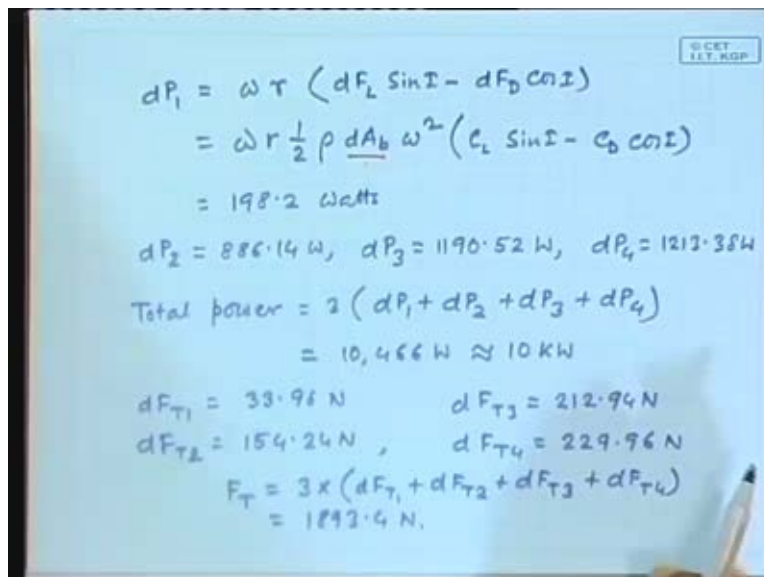 © CET
I.I.T. KGP
dP₁ = ω r (dF_L Sin I - dF_D Cos I)
= ω r ½ ρ dA_b ω² (C_L Sin I - C_D cos I)
= 198.2 Watts
dP₂ = 886.14 W, dP₃ = 1190.52 W, dP₄ = 1213.38W
Total power = 3 (dP₁ + dP₂ + dP₃ + dP₄)
= 10,466 W ≈ 10 KW
dF_T1 = 33.96 N dF_T3 = 212.94N
dF_T2 = 154.24N , dF_T4 = 229.96 N
F_T = 3 x (dF_T1 + dF_T2 + dF_T3 + dF_T4)
= 1893.4 N.